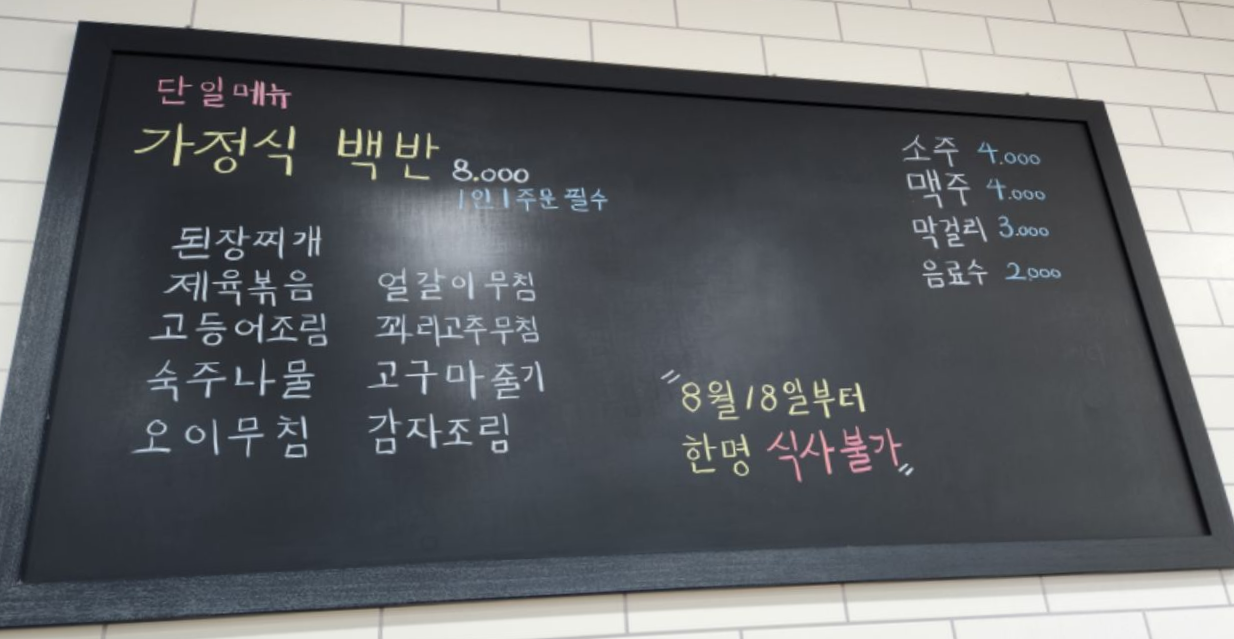 단일메뉴
가정식 백반 8.000
1인 1주문 필수
된장찌개
제육볶음 얼갈이무침
고등어조림 꽈리고추무침
숙주나물 고구마줄기
오이무침 감자조림
소주 4.000
맥주 4.000
막걸리 3.000
음료수 2.000
"8월 18일부터
한명 식사불가"